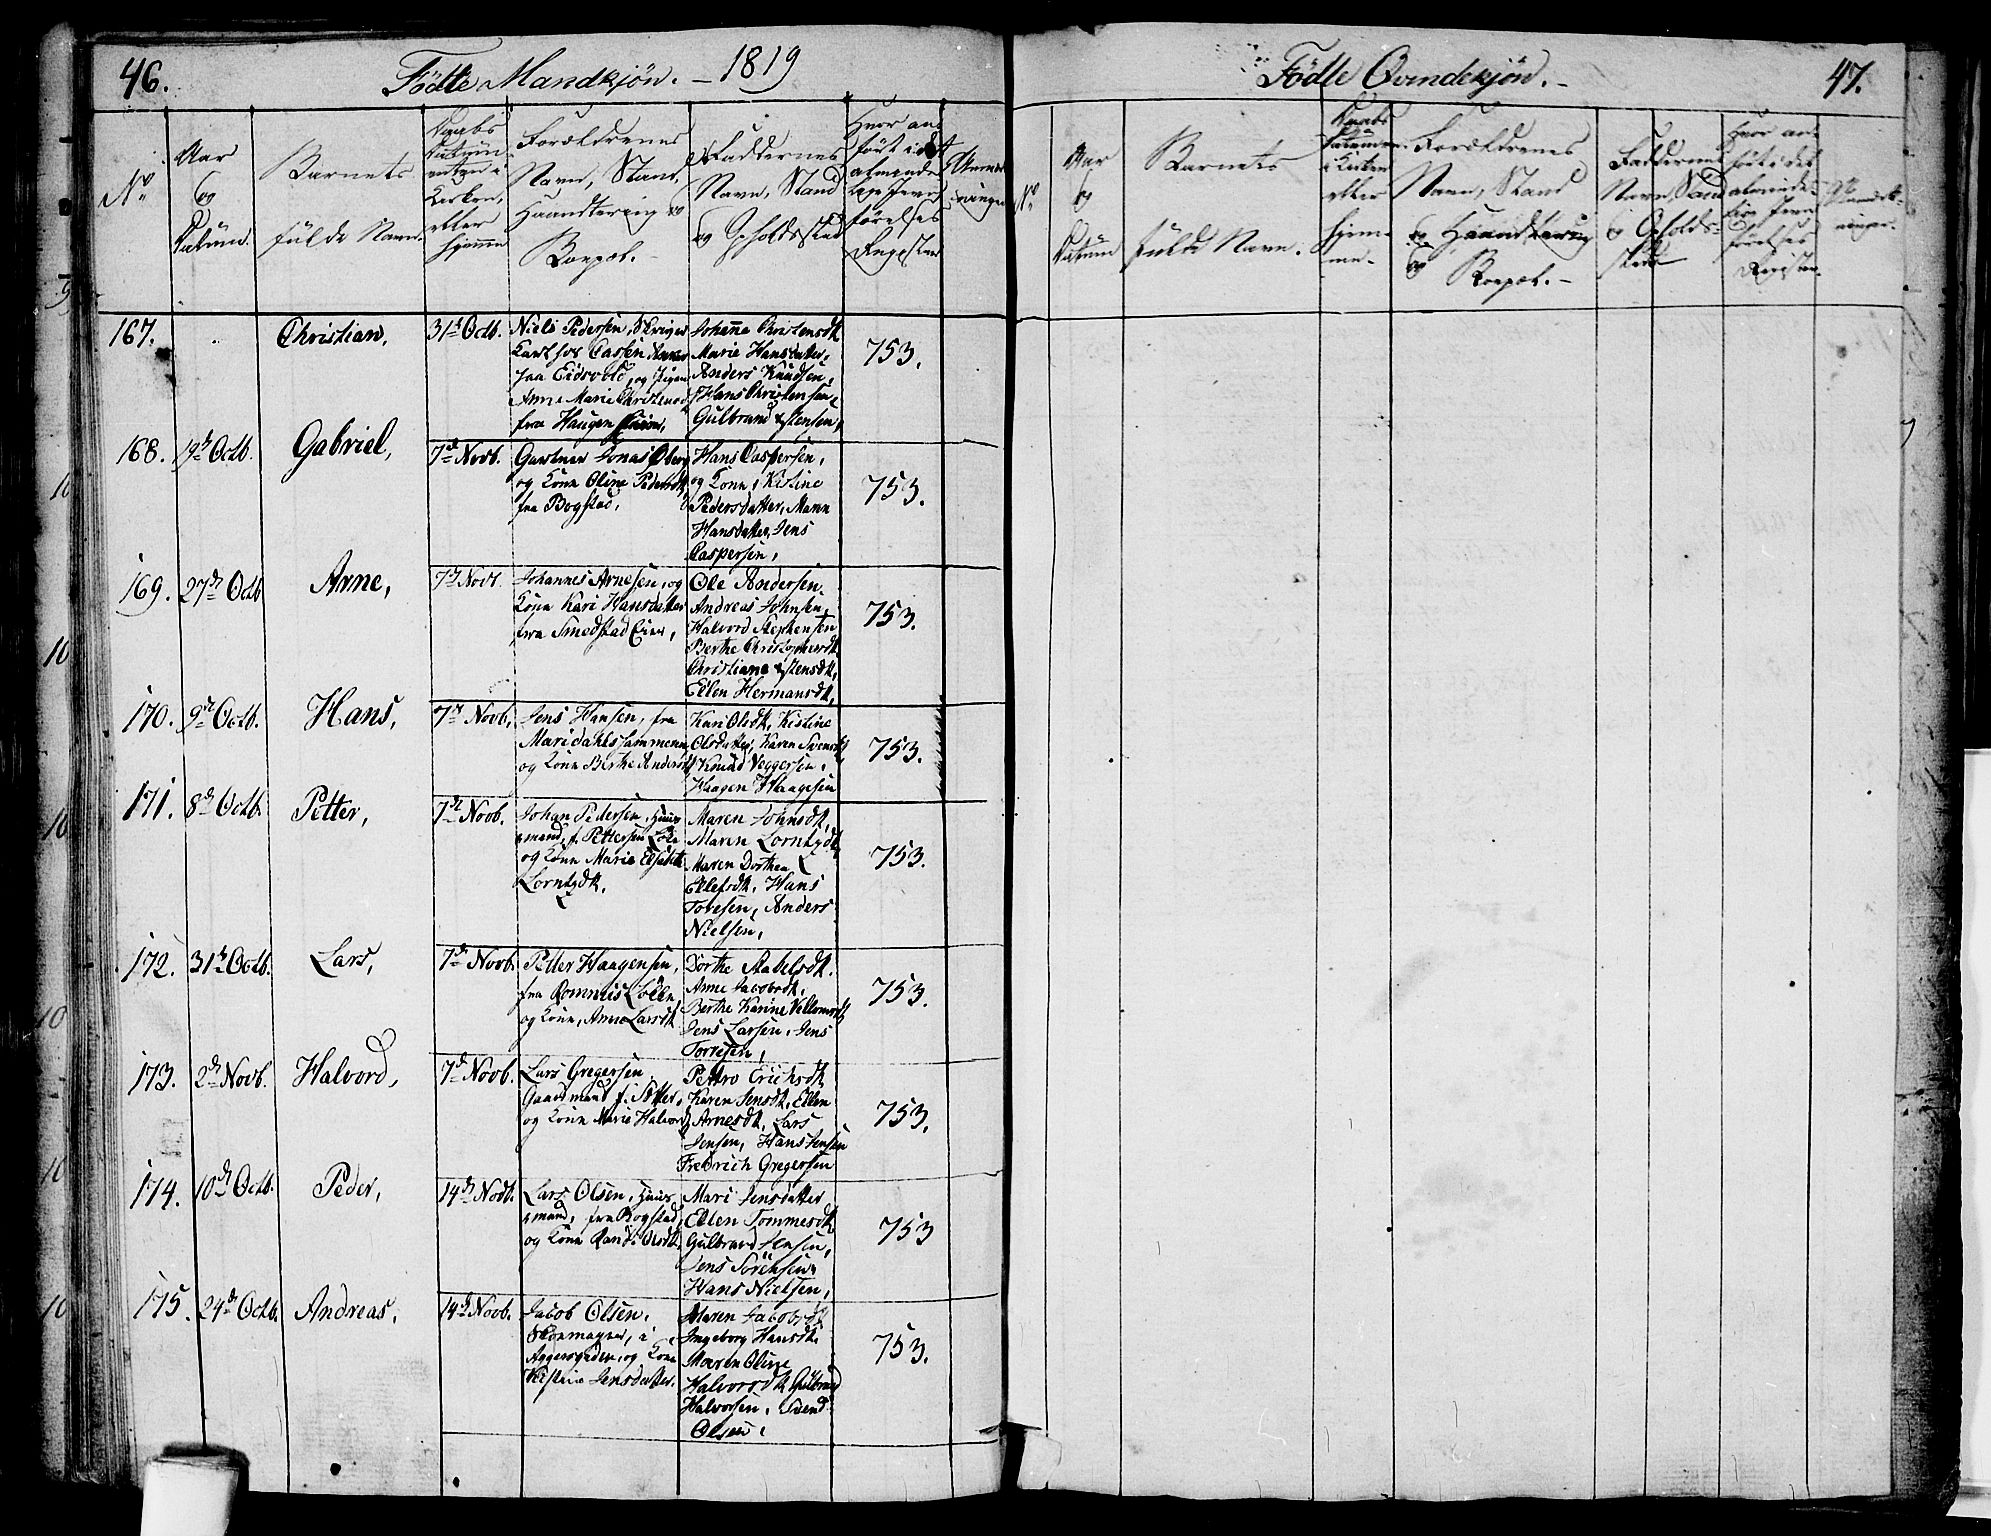 46.
Födte Mandkjön. – 1819
No
Aar
og
Datum.
Barnets
fulde Navn.
Daabs
Datum
enten i
Kirken,
eller
hjemme
Forældrenes
Navn, Stand,
Haandtering og
Boepæl.
Faddernes
Navn, Stand
og Opholdssted
Hvor an-
ført i det
almindelige
Jevn-
førelses
Register
Anmærk-
ninger
167.
Christian,
31t Octb.
Niels Pedersen,
paa Eidsvold, og Pigen
Anne Marie Christensd
fra Haugen
Johanne Christensdt
Marie Hansdatter,
Anders Knudsen,
Hans Christensen,
Gulbrand Estensen,
753.
168.
19de Octb.
Gabriel,
7de Novb.
Gartner Jonas Oberg
og Kone Oline Pedersdt,
fra Bogstad.
Hans Caspersen,
og Kone, Kistine
Pedersdatter, Maren
Hansdatter, Jens
Caspersen,
753.
169.
27de Octb
Arne,
7de Novb.
Johannes Arnesen, og
Kone Kari Hansdatter
fra Smedstad Eier,
Ole Andersen.
Andreas Johnsen,
Halvord Stephensen
Berthe Christophersdt.
Christiane Estensdt,
Ellen Hermansdt,
753.
170.
9de Octb.
Hans,
7de Novb.
Jens Hansen, fra
Maridahlshammeren
og Kone Berthe Andersdt
Kari Olsdt, Kistine
Olsdatter, Karen Svensdt
Knud Veggersen,
Haagen Haagesen
753.
171.
8de Octb.
Petter,
7de Novb.
Johan Pedersen, Huus
mand, f. Pettersen Løke
og Kone Marie Elisabeth
Lorntzdt.
Maren Johnsdt,
Maren Lorntzdt
Maren Dorthea
Ellefsdt, Hans
Toresen, Anders
Nielsen,
753.
172.
31te Octb.
Lars,
7de Novb.
Petter Haagensen,
fra
og Kone, Anne Larsdt
Dorthe
Anne Jacobsdt,
Berthe Karine
Jens Larsen, Jens
Torresen,
753.
173.
2de Novb.
Halvord,
7de Novb.
Lars Gregersen
Gaardmand f.
og Kone Marie Halvordt
Pettro Erichsdt
Karen Jensdt, Ellen
Arnesdt, Lars
Jensen, Hans Jensen
Fredrich Gregersen
753.
174.
10de Octb.
Peder,
14de Novb.
Lars Olsen, Huus
mand, fra Bogstad,
og Kone Randi Olsdt.
Mari Jensdatter
Ellen Tommesdt
Gulbrand Jensen,
Jens Sörensen,
Hans Nielsen,
753
175.
24de Octb.
Andreas,
14de Novb.
Jacob Olsen,
Skoemager, i
Aggersgaden, og Kone
Kistine Jensdatter.
Maren Jacobsdt
Ingeborg Hansdt.
Maren Oline
Halvorsdt Gulbrand
Halvorsen, Svend
Olsen,
753.
Födte Qvindekjön. –
47.
No
Aar
og
Datum
Barnets
fulde Navn.
Daabs
Datum
i Kirken
eller
hjem-
me.
Forældrenes
Navn, Stand
og Haandtering
og
Boepæl. –
Faddernes
Navn, Stand
og Opholds-
sted
Hvor an-
ført i det
alminde-
lige Jevn-
førelses
Register.
Anmærk-
ninger.